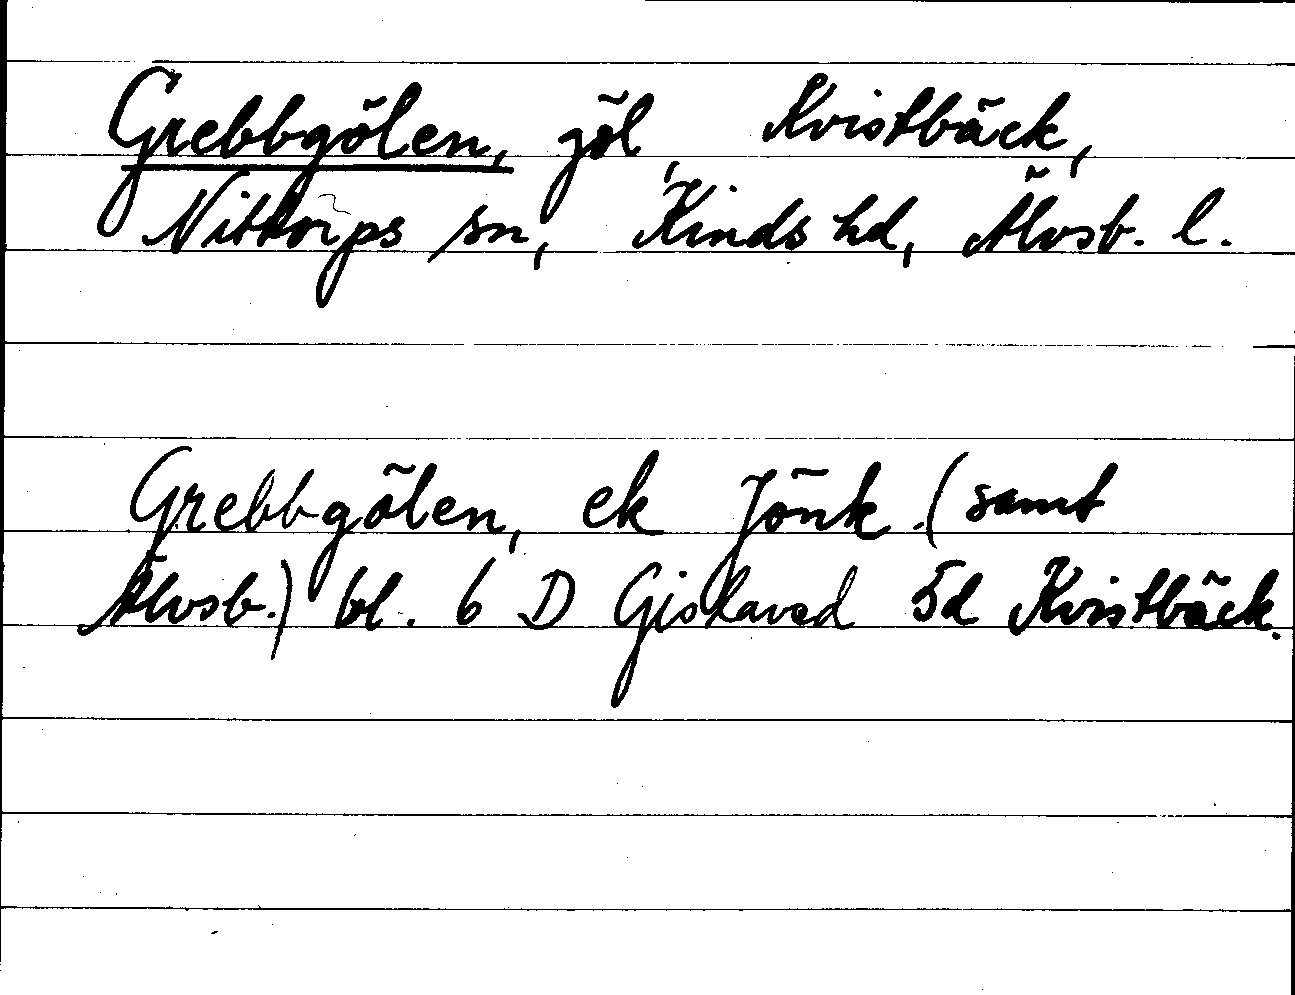 Grebbgölen, göl, Kvistbäck,
Nittorps sn, Kinds hd, Älvsb. l.
Grebbgölen, ek Jönk. (samt
Älvsb.) bl. 6 D Gislaved 5d Kvistbäck.